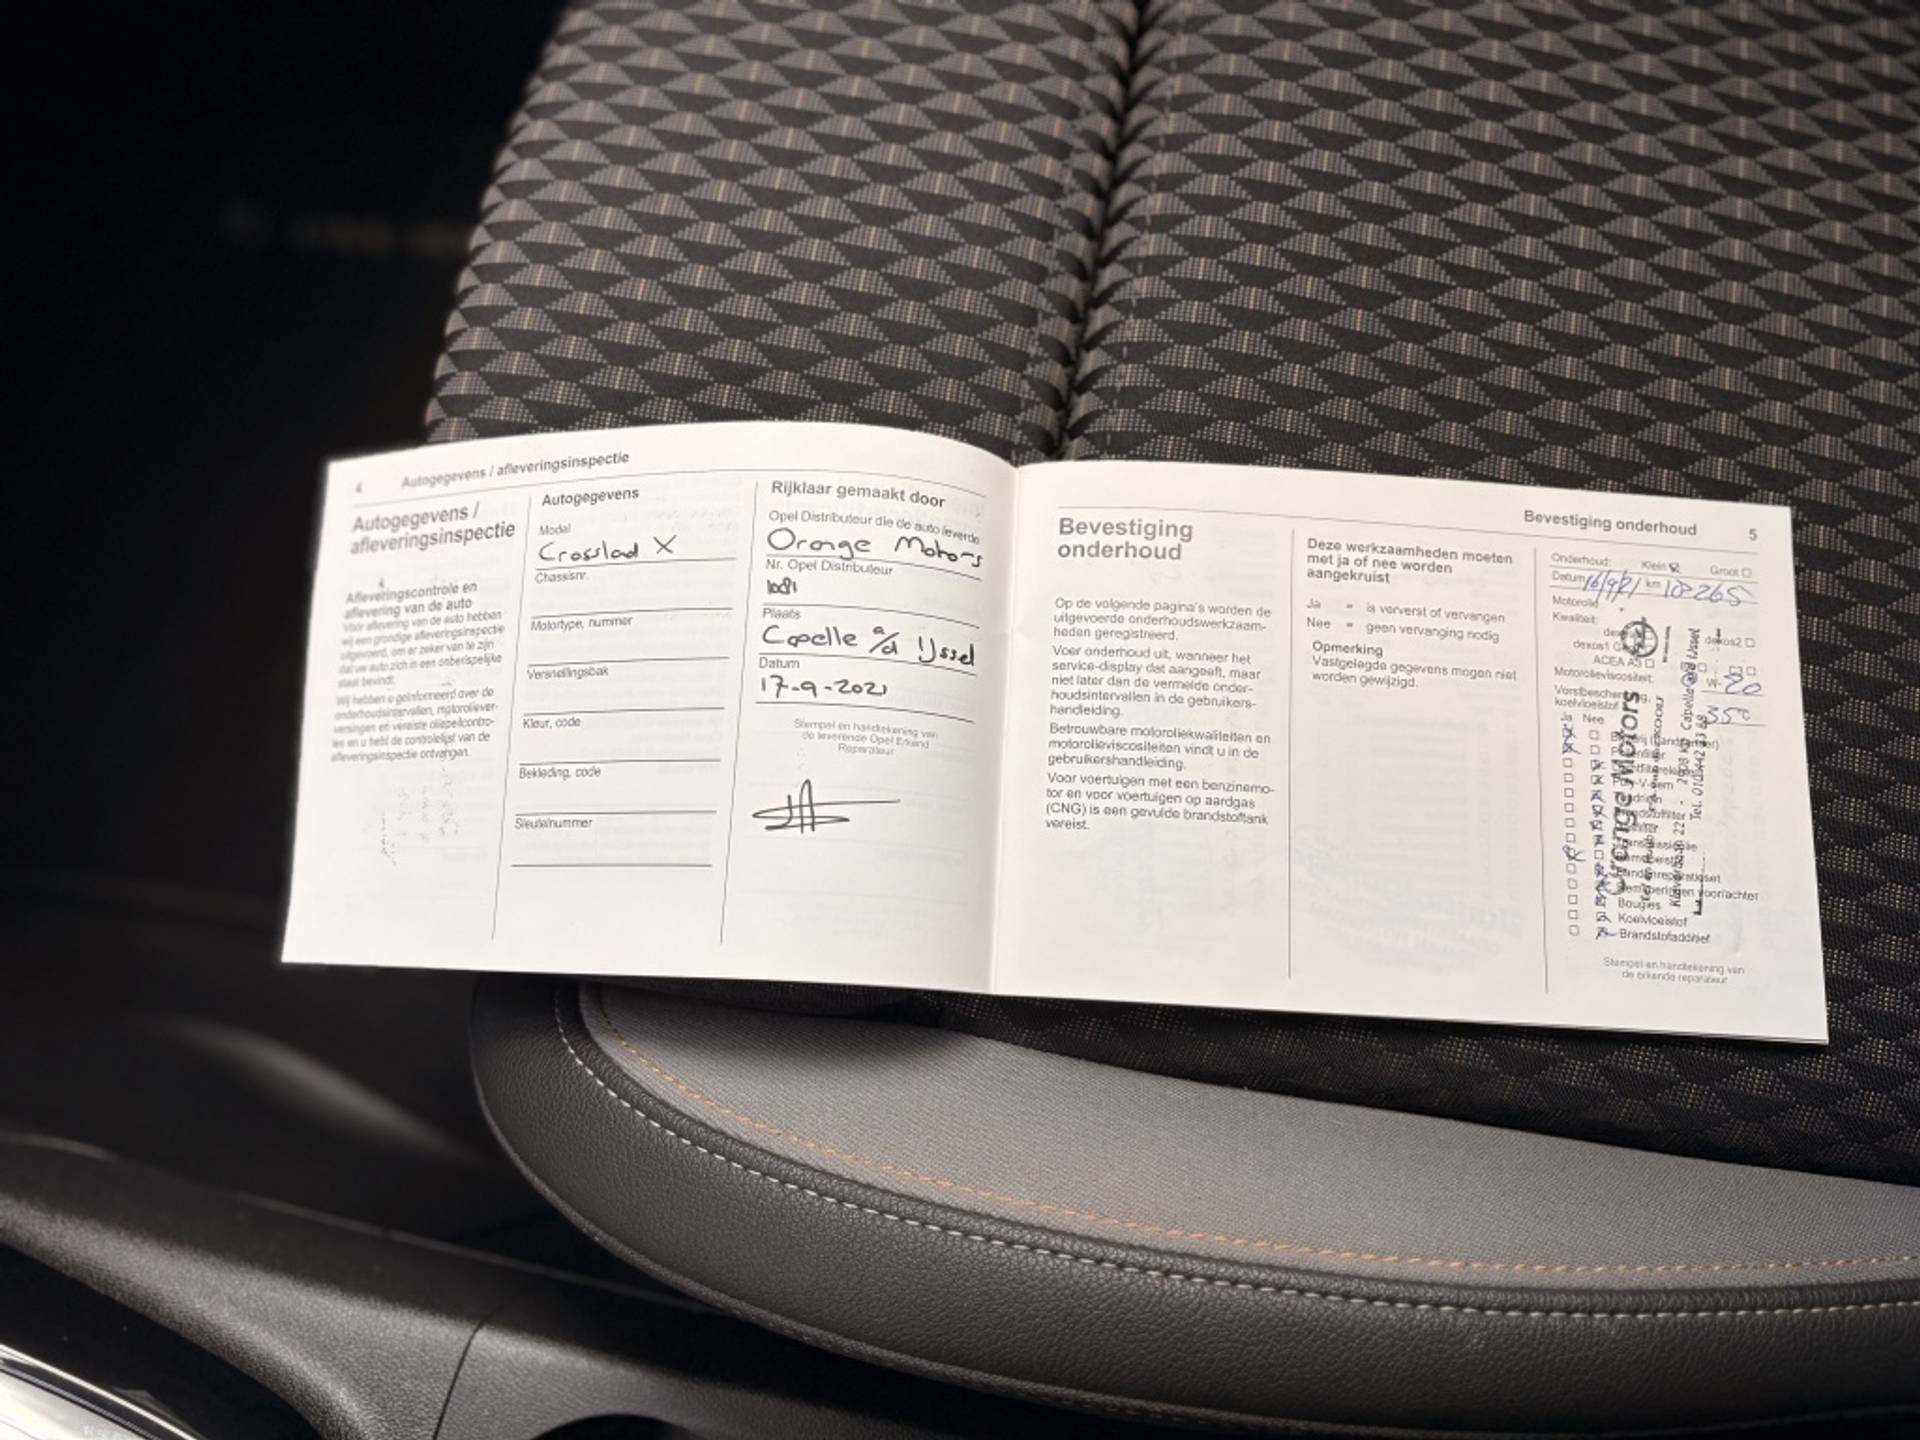 4 Autogegevens / afleveringsinspectie
Autogegevens /
afleveringsinspectie
Afleveringscontrole en
aflevering van de auto
Vóór aflevering van de auto hebben
wij een grondige afleveringsinspectie
uitgevoerd, om er zeker van te zijn
dat uw auto zich in een onberispelijke
staat bevindt.
Wij hebben u geïnformeerd over de
onderhoudsintervallen, motoroliever-
versingen en vereiste oliepeilcontro-
les en u hebt de controlelijst van de
afleveringsinspectie ontvangen.
Autogegevens
Model
Crosslad X
Chassisnr.
Motortype, nummer
Versnellingsbak
Kleur, code
Bekleding, code
Sleutelnummer
Rijklaar gemaakt door
Opel Distributeur die de auto leverde
Orange Motors
Nr. Opel Distributeur
1081
Plaats
Capelle a/d IJssel
Datum
17-9-2021
Stempel en handtekening van
de leverende Opel Erkend
Reparateur
Bevestiging onderhoud 5
Bevestiging
onderhoud
Op de volgende pagina's worden de
uitgevoerde onderhoudswerkzaam-
heden geregistreerd.
Voer onderhoud uit, wanneer het
service-display dat aangeeft, maar
niet later dan de vermelde onder-
houdsintervallen in de gebruikers-
handleiding.
Betrouwbare motoroliekwaliteiten en
motorolieviscositeiten vindt u in de
gebruikershandleiding.
Voor voertuigen met een benzinemo-
tor en voor voertuigen op aardgas
(CNG) is een gevulde brandstoftank
vereist.
Deze werkzaamheden moeten
met ja of nee worden
aangekruist
Ja = is ververst of vervangen
Nee = geen vervanging nodig
Opmerking
Vastgelegde gegevens mogen niet
worden gewijzigd.
Onderhoud: Klein Groot
Datum 16/9/21 km 18265
Motorolie
Kwaliteit:
dexos2
dexos1
ACEA A3 C3
Motorolieviscositeit: W- 20
Vorstbescherming,
koelvloeistof 35°
Ja Nee
Bougies
Koelvloeistof
Brandstofadditief
Orange Motors
Capelle a/d IJssel
Stempel en handtekening van
de erkende reparateur